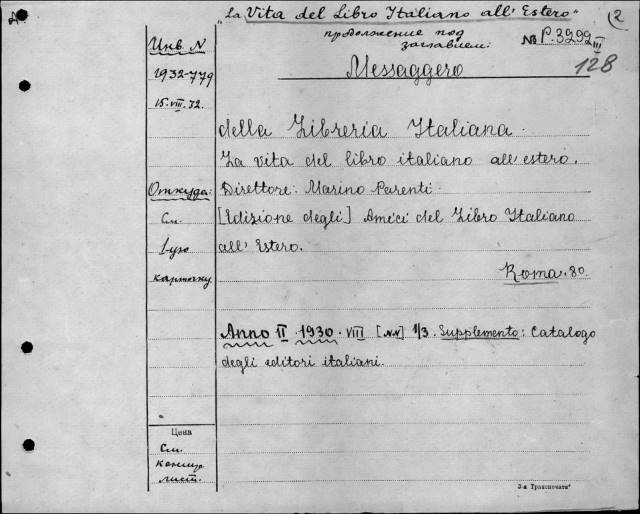 "La Vita del Libro Italiano all' Estero"
2
продолжение под
заглавием:
№ P. 3292
III
128
Инв. N
1932-779
15. VIII. 32.
Откуда:
См.
1-ую
карточку
Messaggero
della Libreria Italiana.
La vita del libro italiano all' estero.
Direttore: Marino Parenti.
[Edizione degli] Amici del Libro Italiano
all' Estero.
Roma. 8o.
Anno II. 1930. VIII [NN] 1/3. Supplemento: Catalogo
degli editori italiani.
Цена
См.
лист.
3-я Транспечати"